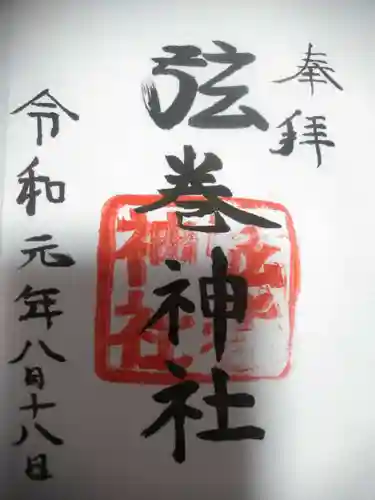 奉拝
弦巻神社
令和元年八月十八日